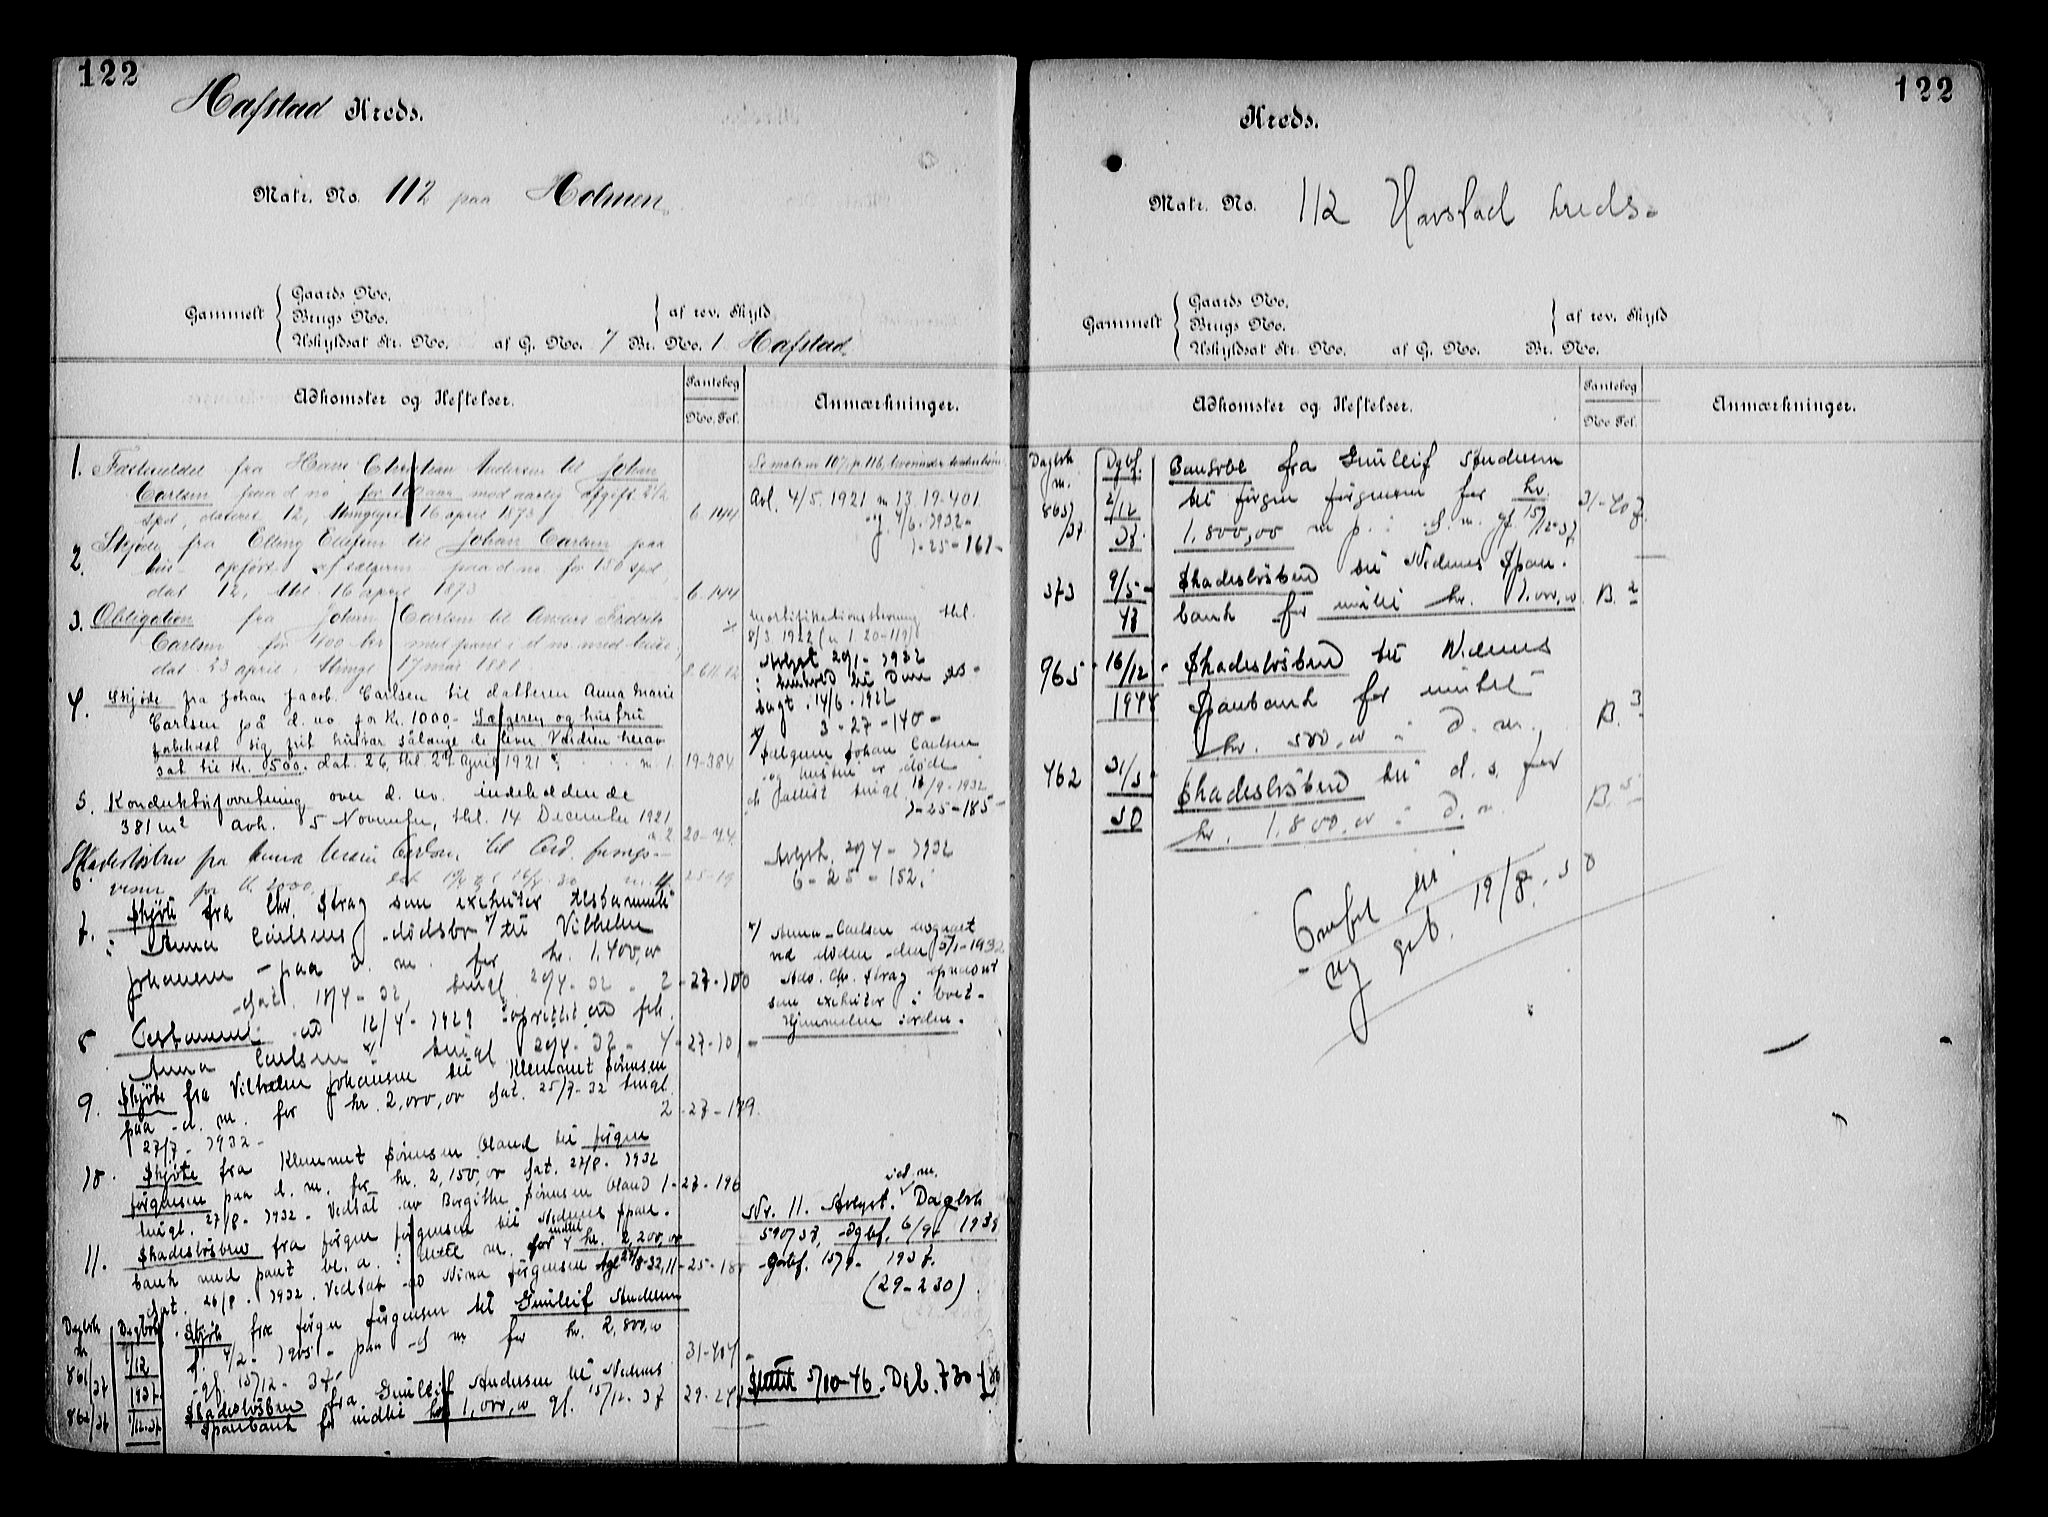 122
Hafstad Kreds.
Matr. No. 112 paa Holmen.
Gammelt
Gaards No.
Brugs No.
Uskyldsat Str. No. af G. No. 7 Br. No. 1 Hafstad.
af rev. Skyld
Adkomster og Heftelser.
Pantebog
No. Fol.
Anmærkninger.
1. Fæsteseddel fra Hans Christian Andersen til Johan
Carlsen paa d. no for 100 aar mod aarlig afgift 2 1/2
spd., dateret 12, thinglyst 16 april 1873 6-144
2. Skjøde fra Elling Ellefsen til Johan Carlsen paa
hus opført af sælgeren paa d. no. for 186 spd.
dat 12, thl. 16 april 1873 6-144
3. Obligation fra Johan Carlsen til Anders Fredrik
Carlsen for 400 kr med pant i d no. med huse,
dat. 23 april, thingl. 17 mai 1881 8.611.12
4. Skjøde fra Johan Jacob Carlsen til datteren Anna Marie
Carlsen på d. no for Kr. 1000- Sælgeren og hustru
forbeholdt sig frit husvær sålænge de lever Værdien herav
sat til Kr. 1500. dat. 26, thl. 27 april 1921 n 1. 19-384
5. Konduktørforretning over d. no. indeholdende
381 m2 avh. 5 November, thl. 14 December 1921
n 2 20-44
6. Skadesløsbrev fra Anna Marie Carlsen til Ard.
for kr. 2000. 25-19
7. Skjøte fra Chr. Strag som exekutor testamenti
i Anna Carlsens dødsbo x/ til Vilhelm
Johansen paa d. m. for kr. 1.400,00
dat. 18/4-32, tingl. 29/4-32 - 2-27-100
8 Testament av 12/4-1929 oprettet av frk.
Anna Carlsen x/ tingl 29/4-32- 4-27-101-
9. Skjøte fra Vilhelm Johansen til Klemmet Sørensen
paa d. m. for kr. 2,000,00 dat. 25/7-32 tingl.
27/7-1932- 2-27-179.
10. Skjøte fra Klemmet Sørensen Øland til Jørgen
Jørgensen paa d. m. for kr. 2,150,00 dat. 27/8-1932
tingl. 27/8-1932. Vedtat av Borgithe Sørensen Øland 1-27-196
11. Skadesløsbrev fra Jørgen Jørgensen til Nedenes Spare-
bank med pant bl. a. i dette m. for indtil kr. 2,200,00
dat. 26/8-1932. Vedtat av Nina Jørgensen tgl 27/8-32, 11-25-18
Dagbok Dagbokf. Skjøte fra Jørgen Jørgensen til Gunleif Andersen
f. 4/2-1905- paa d m for kr. 2,800,00
861/37 1/12 1937. gf. 15/12-37. 31-407
862/37 1/12-37. Skadesløsbrev fra Gunleif Andersen til Nedenes
Sparebank for indtil kr. 1,000,00 gf. 15/12-37 29-24
Se matr no 107, p 116,
Avl. 4/5. 1921 n 13 19-401
1-25-161-
mortifikationsskrivning thl.
8/3 1922 (n 1. 20-119)
Avlyst 29/1-1932
sagt. 14/6-1922
3-27-140-
x/ Sælgeren Johan Carlsen
og hustru er døde
tingl. 16/9-1932
1-25-185-
Avlyst. 29/4-1932
6-25-152.
x/ Anna Carlsen avgaaet
ved døden den 5/1-1932
Adv. Chr. Strag opnævnt
som exekutor i boet-
Hjemmelen i orden.
Nr. 11. Avlyst. i d. m. Dagbok
590/37, dgbf. 6/9- 1937
Gbf. 15/9- 1937.
(29-230).
Slettet 5/10-46. Dgb. 730
122
Kreds.
Matr. No. 112 Havstad kreds.
Gammelt
Gaards No.
Brugs No.
Uskyldsat Str. No. af G. No. Br. No.
af rev. Skyld
Adkomster og Heftelser.
Pantebog
No Fol.
Anmærkninger.
Dagbok Dgbf. Panteobl fra Gunleif Andersen
863/37 2/12 37. til Jørgen Jørgensen for kr.
1.800,00 m p. i d. m. gf. 15/12-37 31-407.
373 9/5- 47 Skadesløsbrev til Nedenes Spare-
bank for inntil kr. 1.000,00 B. 2
965 16/12 1948 Skadesløsbrev til Nedenes
Sparebank for inntil
kr. 500,00 i d. m. B. 3
462 31/5 50 Skadesløsbrev til d. s. for
kr. 1.800,00 i d. m. B. 5
Omført til
ny gb. 19/8. 50